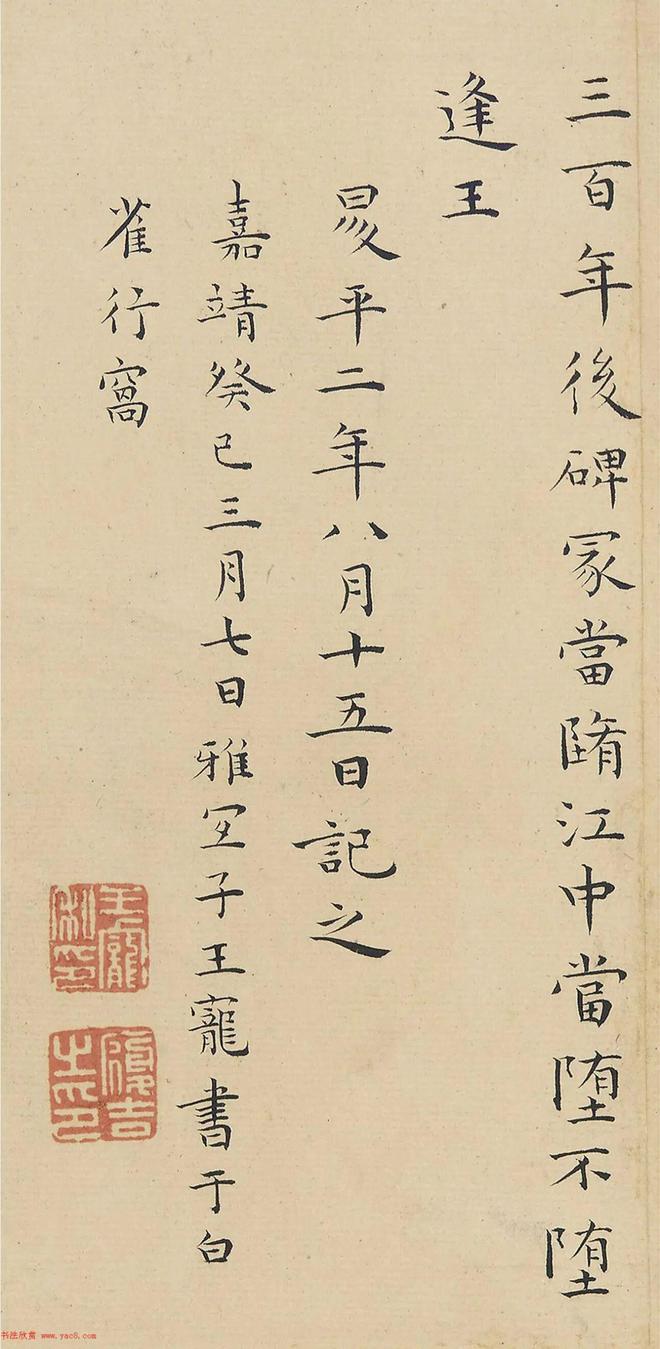 三百年後碑冢當隋江中當堕不堕
逢王
昇平二年八月十五日記之
嘉靖癸巳三月七日雅冝子王寵書于白
雀行窩
王寵私印
履吉之印
书法欣赏 www.yac8.com